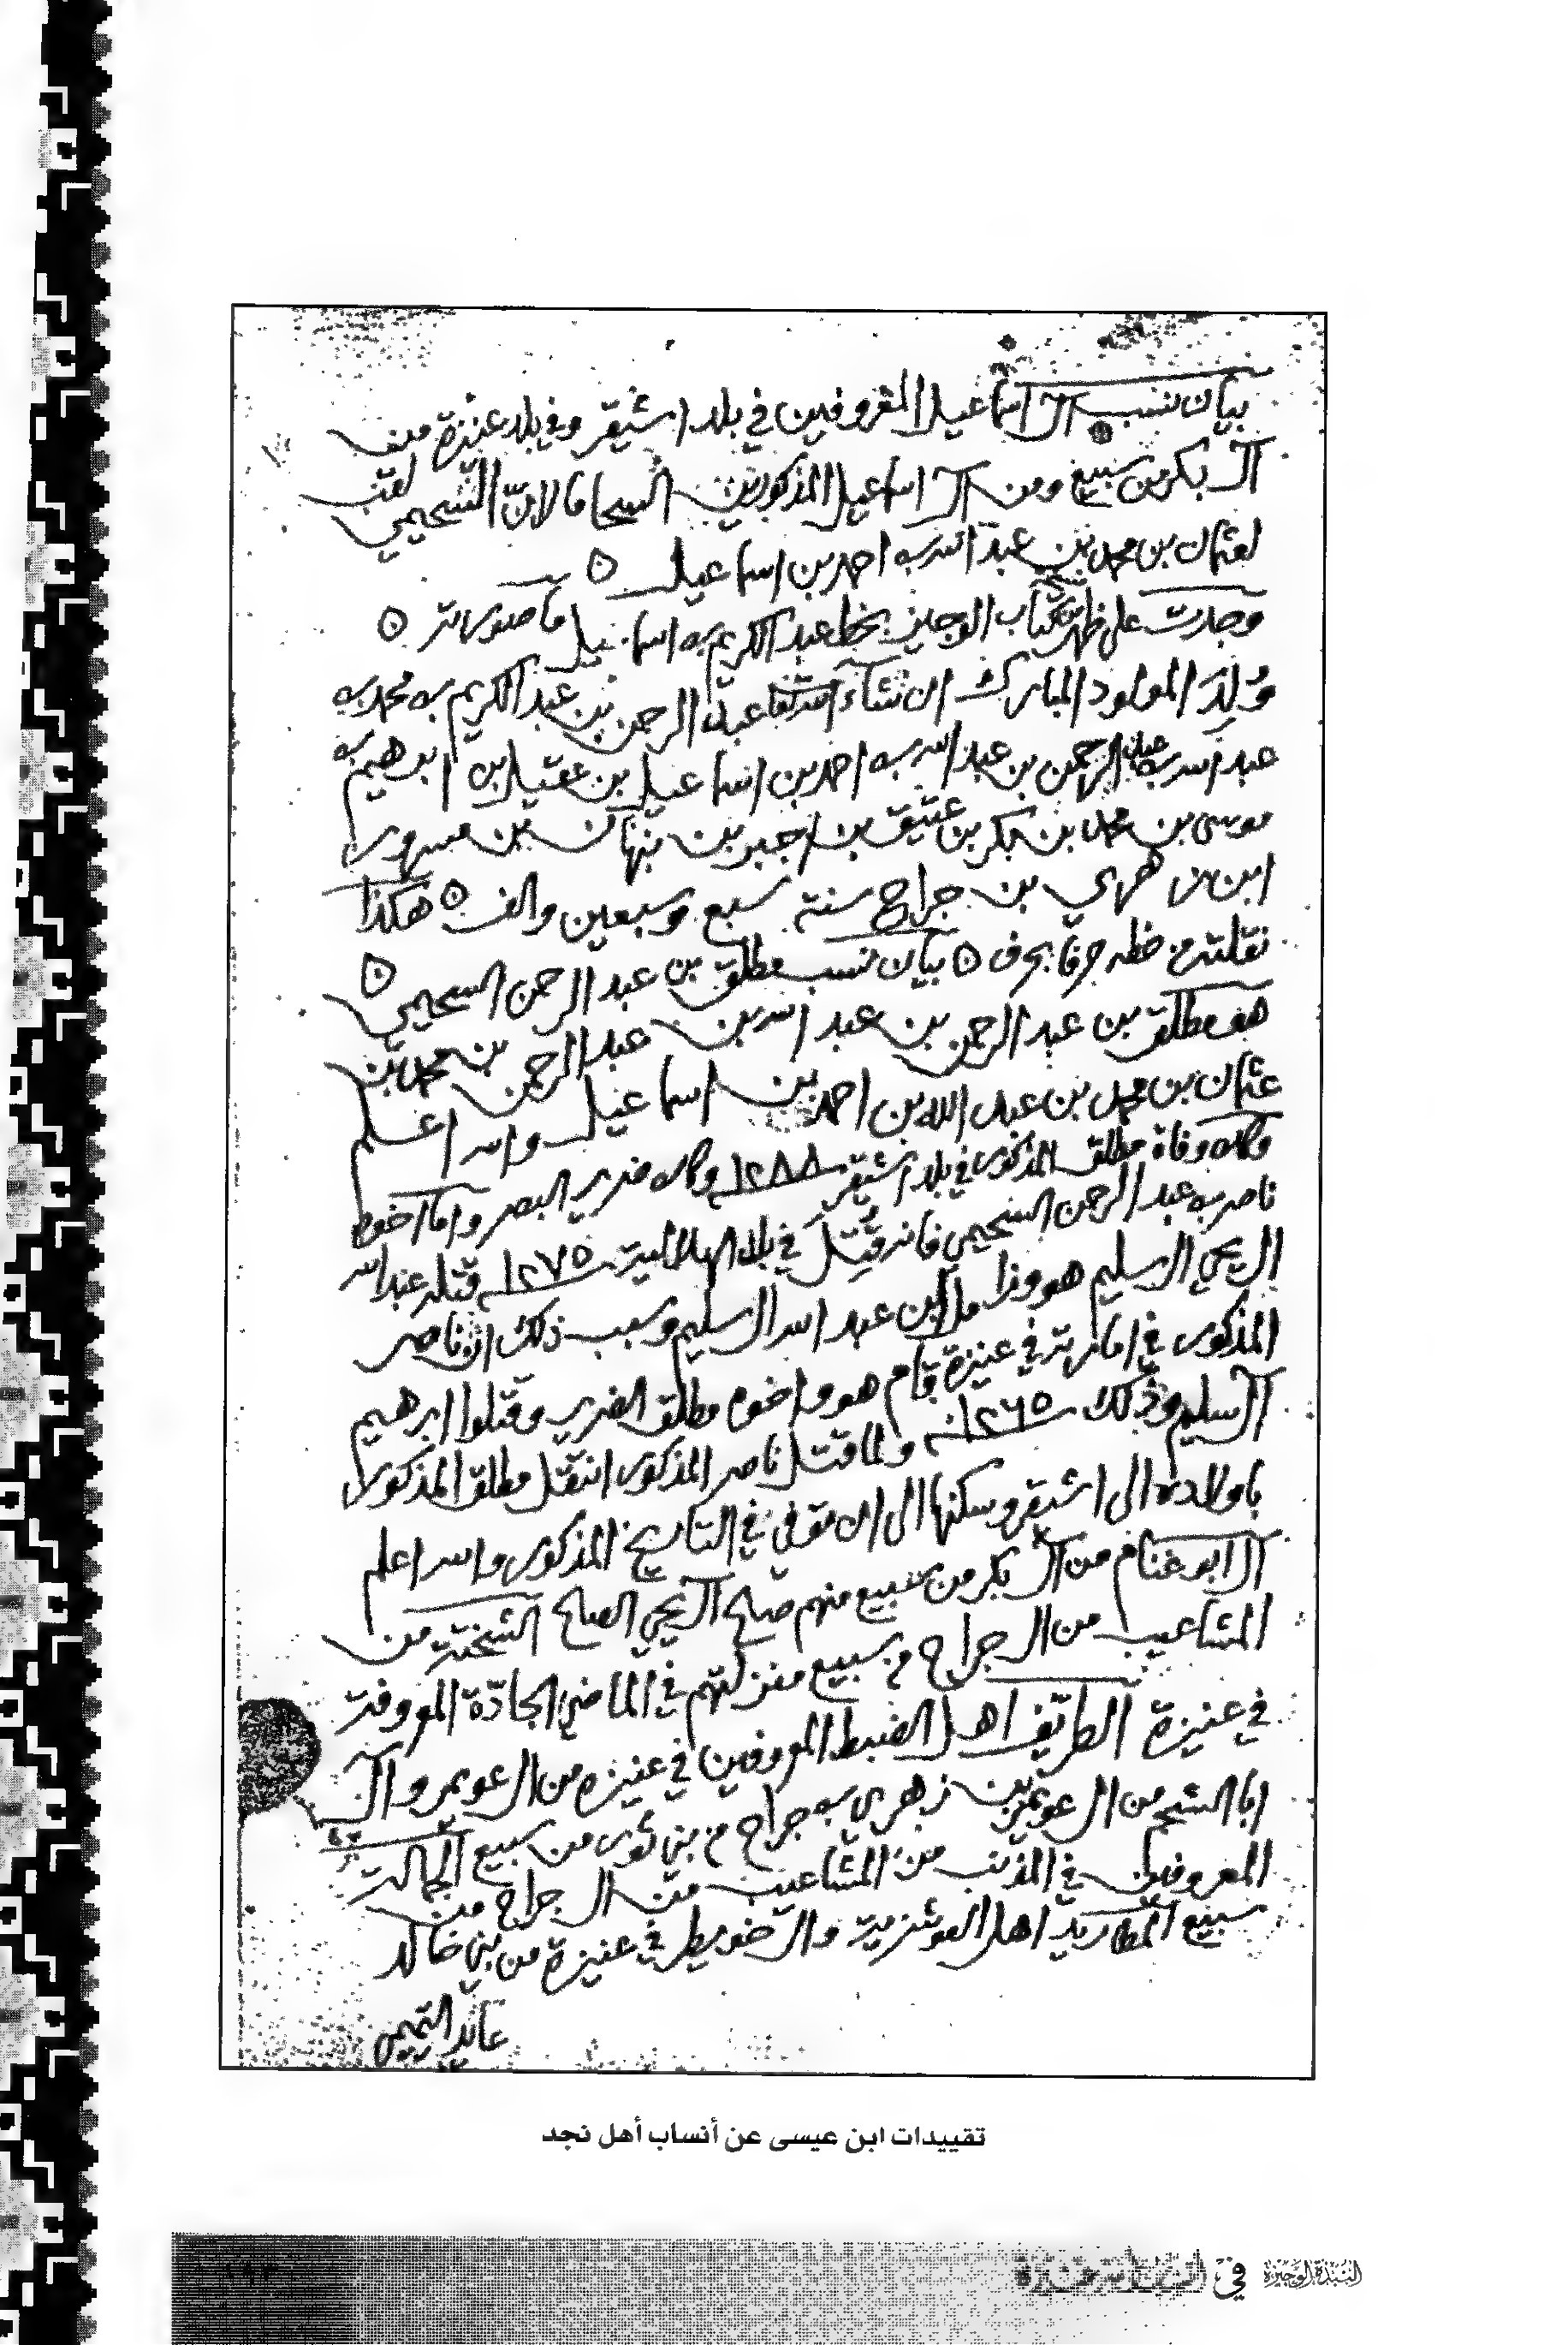 بيان نسب آل اسماعيل المعروفين في بلد اشيقر وفي بلد عنيزة من
آل بكر من سبيع ومن آل اسماعيل المذكورين السحاما لانّ السحيمي لقب
لعثمان بن محمد بن عبد الله بن احمد بن اسماعيل ٥
وجدت على ظهر كتاب الوجيز بخط عبد الكريم بن اسماعيل ما صورته ٥
وُلِدَ المولود المبارك ان شاء الله تعالى عبد الرحمن بن عبد الكريم بن محمد بن
عبد الله بن عبد الرحمن بن عبد الله بن احمد بن اسماعيل بن عقيل بن ابرهيم بن
موسى بن محمد بن بكر بن عتيق بن جبر بن نبهان بن مسرور
ابن زهري بن جراح سنة سبع وسبعين والف ٥ هكذا
نقلته من خطه حرفا بحرف ٥ بيان نسب مطلق بن عبد الرحمن السحيمي ٥
هو مطلق بن عبد الرحمن بن عبد الله بن عبد الرحمن بن محمد بن
عثمان بن محمد بن عبد الله بن احمد بن اسماعيل والله اعلم
وكانه وفاة مطلق المذكور في بلد اشيقر ١٢٨٨ وكان ضرير البصر واما اخوه
ناصر بن عبد الرحمن السحيمي فانه قُتِلَ في بلد الهلالية ١٢٧٥ قتله عبد الله
اليحيى السليم هو وزامل بن عبد الله السليم وسبب ذلك ان ناصر
المذكور في امارته في عنيزة قام هو واخوه مطلق الضرير وقتلوا ابرهيم
السليم وذلك ١٢٦٥ ولما قتل ناصر المذكور انتقل مطلق المذكور
باولاده الى اشيقر وسكنها الى ان توفي في التاريخ المذكور والله اعلم
آل ابو غنام من آل بكر من سبيع منهم صالح اليحيى الصالح الشختة من
المشاعيب من آل جراح من سبيع منزلتهم في الماضي الجادّة المعروفة
في عنيزة الطريّف اهل الضبط المعروفين في عنيزة من آل عويمر وآل
ابا الشحم من آل عويمر بن زهري بن جراح من بني ثور من سبيع الجمالة
المعروفين في المذنب من المشاعيب من آل جراح من
سبيع المطاريد اهل العوشزية وآل خويطر في عنيزة من بني خالد
تقييدات ابن عيسى عن أنساب أهل نجد
النبذة الوجيزة في